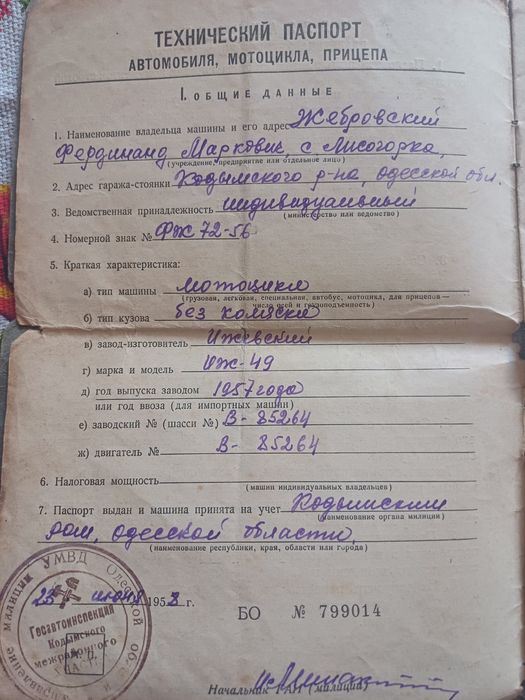 ТЕХНИЧЕСКИЙ ПАСПОРТ
АВТОМОБИЛЯ, МОТОЦИКЛА, ПРИЦЕПА
I. ОБЩИЕ ДАННЫЕ
1. Наименование владельца машины и его адрес Жебровский
Фердинанд Маркович, с. Лисогорка,
(учреждение, предприятие или отдельное лицо)
2. Адрес гаража-стоянки Кодымского р-на, одесской обл.
3. Ведомственная принадлежность индивидуальный
(министерство или ведомство)
4. Номерной знак № ФЖ 72-56
5. Краткая характеристика:
а) тип машины мотоцикл
(грузовая, легковая, специальная, автобус, мотоцикл, для прицепов — число осей и грузоподъемность)
б) тип кузова без коляски
в) завод-изготовитель Ижевский
г) марка и модель ИЖ-49
д) год выпуска заводом 1957 года
или год ввоза (для импортных машин)
е) заводский № (шасси №) В-85264
ж) двигатель № В-85264
6. Налоговая мощность
(машин индивидуальных владельцев)
7. Паспорт выдан и машина принята на учет Кодымским
(наименование органа милиции)
ром, Одесской области,
(наименование республики, края, области или города)
23 июня 1958 г.
БО № 799014
Госавтоинспекция
Кодымского
межрайонного
Начальник ГАИ (милиции)